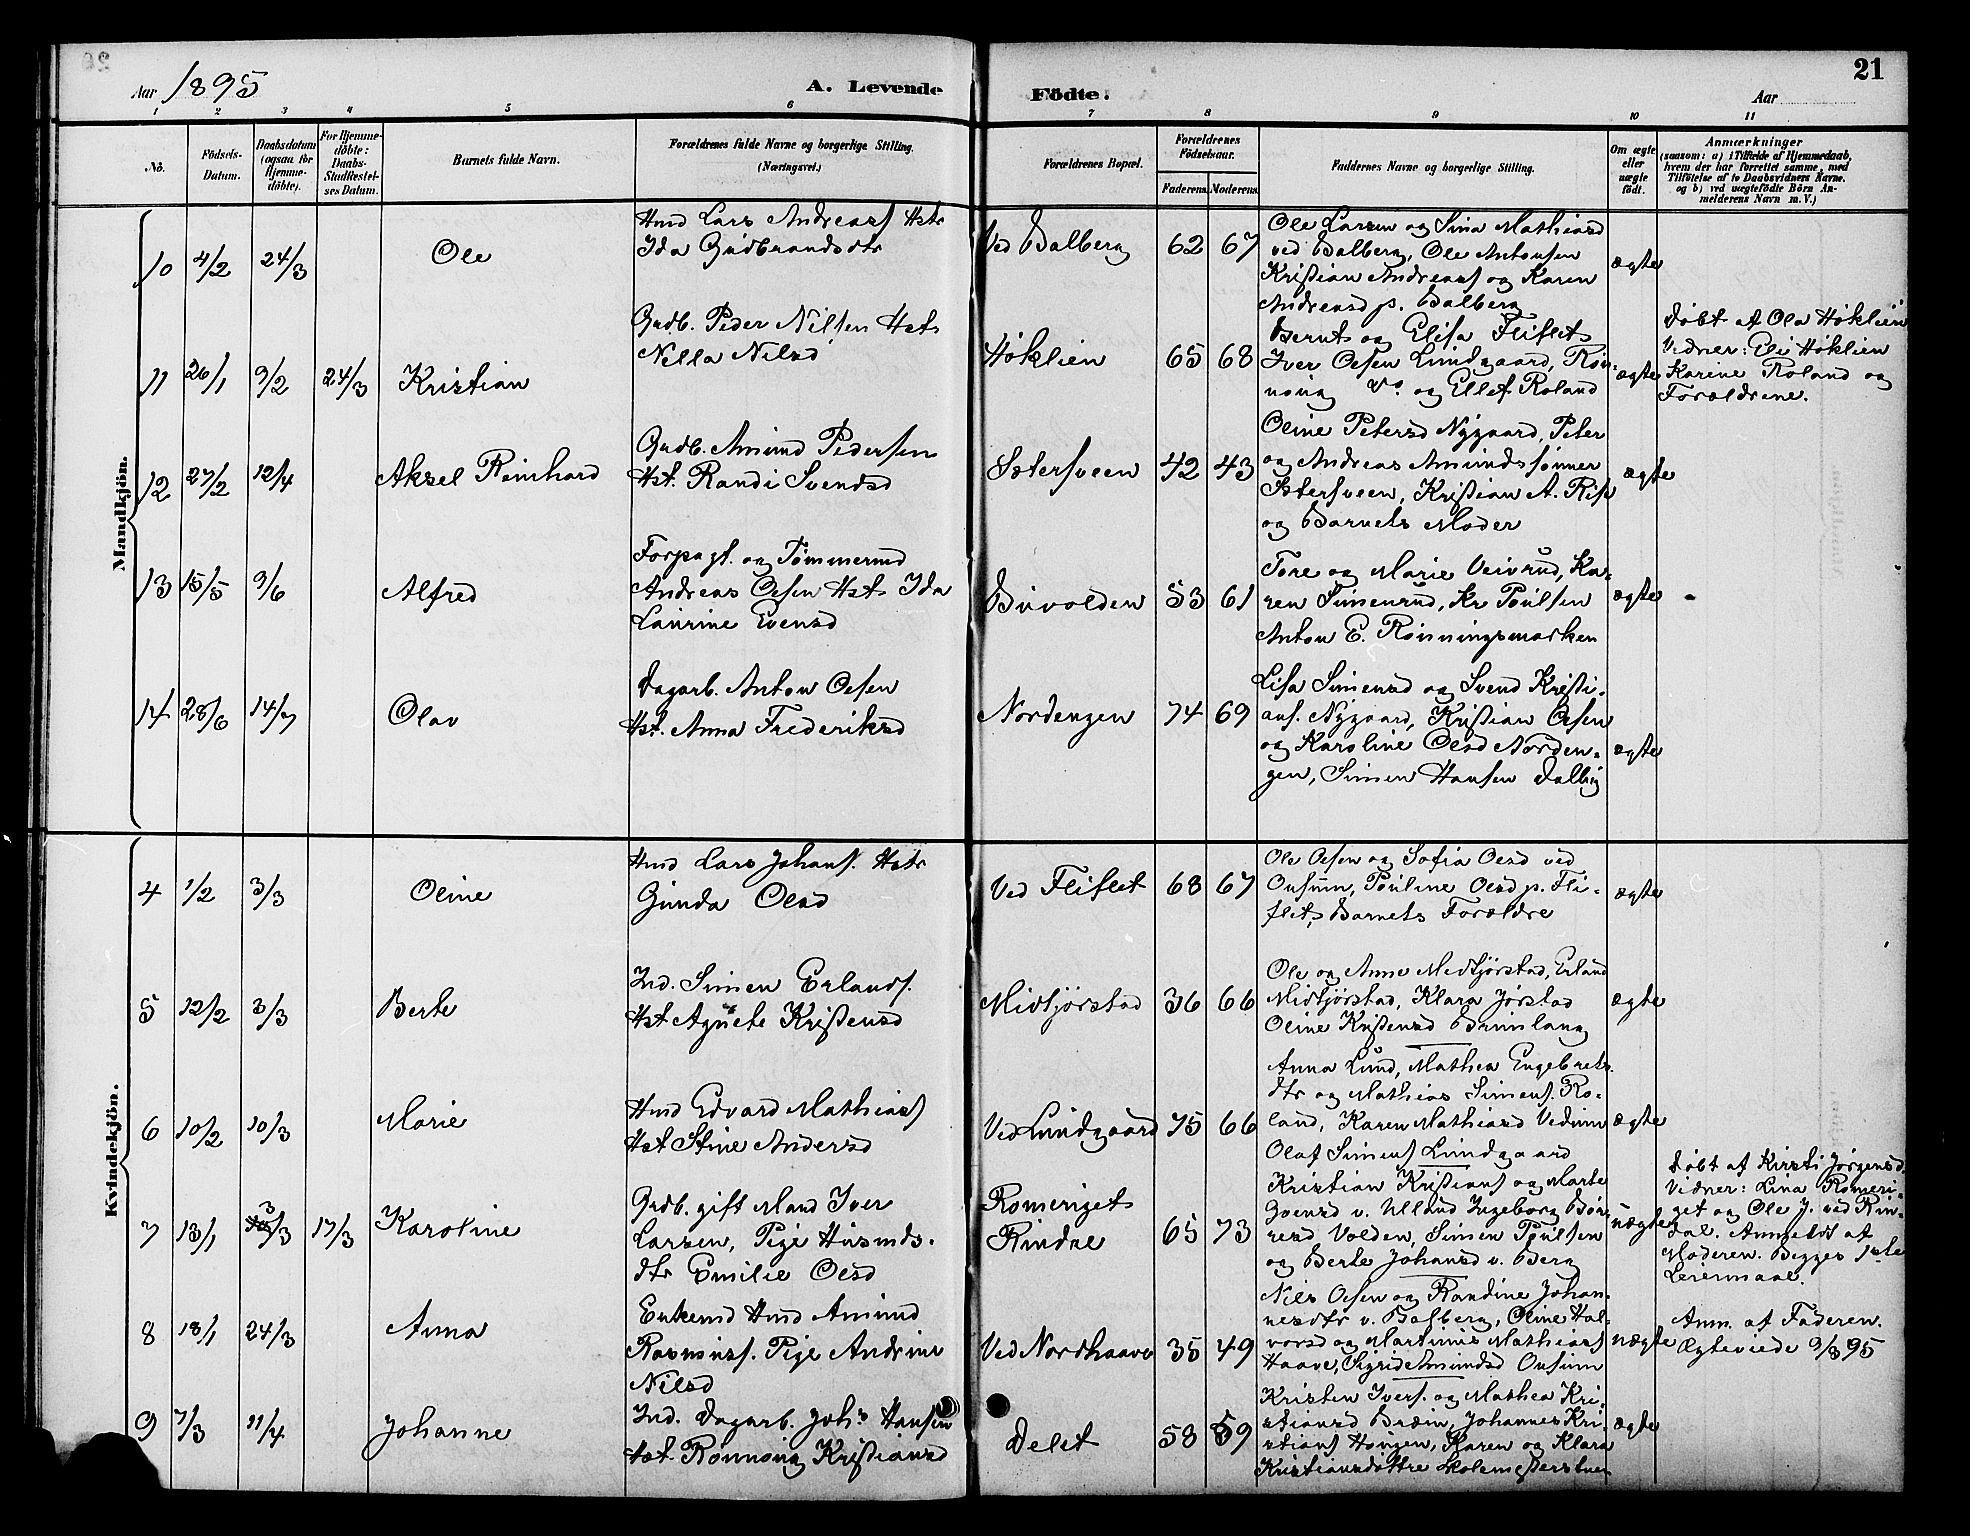 Aar 1895
A. Levende Födte.
21
Aar
1 2 3 4 5 6 7 8 9 10 11
No.
Födsels-Datum.
Daabsdatum (ogsaa for Hjemme-döbte).
For Hjemme-döbte: Daabs-Stadfæstel-ses Datum.
Barnets fulde Navn.
Forældrenes fulde Navne og borgerlige Stilling.
(Næringsvei.)
Forældrenes Bopæl.
Forældrenes Födselsaar.
Faderens. Moderens.
Faddernes Navne og borgerlige Stilling.
Om ægte eller uægte födt.
Anmærkninger
(saasom: a) i Tilfælde af Hjemmedaab,
hvem der har forrettet samme, med
Tilföielse af to Daabsvidners Navne,
og b) ved uægtefödte Börn An-
melderens Navn m. V.)
Mandkjön.
10 4/2 24/3 Ole
Hmd Lars Andreasf Hstr
Ida Gudbrandsdtr
Ved Balberg 62 67
Ole Larsen og Sina Mathiasd
ved Balberg, Ole Antonsen
Kristian Andreasf og Karen
Andreasd p. Balberg
ægte
11 26/1 9/2 24/3 Kristian
Grdb. Peder Nilsen Hstr
Nella Nilsd
Høklien 65 68
Bernt og Elisa Fliflet
Iver Olsen Lundgaard, Røn-
noug do og Ellef Roland
ægte
Døbt af Ola Høklien
Vidner: Eli Høklien
Karine Roland og
Forældrene.
12 27/2 12/4 Aksel Reinhard
Grdb. Amund Pedersen
Hst. Randi Svendsd
Sætersveen 42 43
Oline Petersd Nygaard, Peter
og Andreas Amundssønner
Sætersveen, Kristian A. Rise
og Barnets Moder
ægte
13 15/5 9/6 Alfred
Forpagt. og Tømmermd
Andreas Olsen Hstr Ida
Laurine Evensd
Buvolden 53 61
Tore og Marie Veivrud, Ka-
ren Simenrud, Kr Poulsen
Anton E. Rønningsmarken
ægte
14 28/6 14/7 Olav
Dagarb. Anton Olsen
Hst. Anna Frederiksd
Nordengen 74 69
Lisa Simensd og Svend Kristi-
ansf. Nygaard, Kristian Olsen
og Karoline Olsd Norden-
gen, Simen Hansen Dalby
ægte
Kvindekjön.
4 1/2 3/3 Oline
Hmd Lars Johansf. Hstr
Gunda Olsd
Ved Fliflet 68 67
Ole Olsen og Sofia Olsd ved
Ousum, Pauline Olsd p. Fli-
flet, Barnets Forældre
ægte
5 12/2 3/3 Berte
Ind. Simen Erlandsf.
Hst Agnete Kristensd
Midtjørstad 36 66
Ole og Anne Midtjørstad, Erland
Midtjørstad, Klara Jørstad
Oline Kristensd Brunlaug
ægte
6 10/2 10/3 Marie
Hmd Edvard Mathiasf
Hst Stine Andersd
Ved Lundgaard 75 66
Anna Lund, Mathea Engebrets-
dtr og Mathias Simensf. Ro-
land, Karen Mathiasd Vedum
Olaf Simensf Lundgaard
ægte
7 13/1 3/3 17/3 Karoline
Grdb. gift Mand Iver
Larsen, Pige Husmds-
dtr Emilie Olsd
Romeriget
Rindal 65 73
Kristian Kristiansf og Marte
Evensd v. Ulland Ingeborg Bør-
resd Volden, Simen Poulsen
og Berte Johansd v. Berg
uægte
Døbt af Kirsti Jørgensd.
Vidner: Lina Romeri-
get og Ole J. ved Rin-
dal. Anmeldt af
Moderen. Begges 1ste
Leiermaal.
8 18/1 24/3 Anna
Enkemd Hmd Amund
Rasmusf. Pige Andrine
Nilsd
Ved Nordhaave 35 49
Nils Olsen og Randine Johan-
nesdtr v. Balberg, Oline Hal-
vorsd og Martinus Mathiasf
Haave, Sigrid Amundsd Ousum
uægte
Anm. af Faderen.
Ægteviede 9/3 95
9 7/3 11/4 Johanne
Ind. Dagarb. Johs Hansen
Hst. Rønnoug Kristiansd
Delet 58 59
Kristen Iversf. og Mathea Kri-
stiansd Bræin, Johannes Kri-
stiansf Hougen, Karen og Klara
Kristiansdøttre Skolemesterstuen
ægte